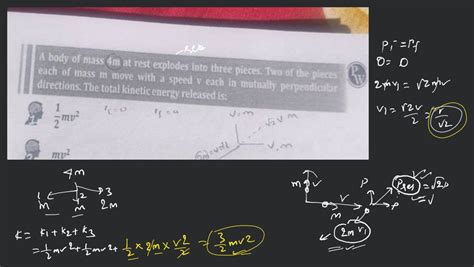 A body of mass 4m at rest explodes into three pieces. Two of the pieces
each of mass m move with a speed v each in mutually perpendicular
directions. The total kinetic energy released is:
1/2 mv²
Pi = Pf
0 = 0
2mv₁ = √2mv
v₁ = √2v/2 = v/√2
v, m
√2 v m
v, m
4m
1 2 3
m m 2m
K = K1 + K2 + K3
= 1/2 mv² + 1/2 mv² + 1/2 × 2m × v²/2 = 3/2 mv2
m v
v
m
P
P
Pres = √2P
2m v₁